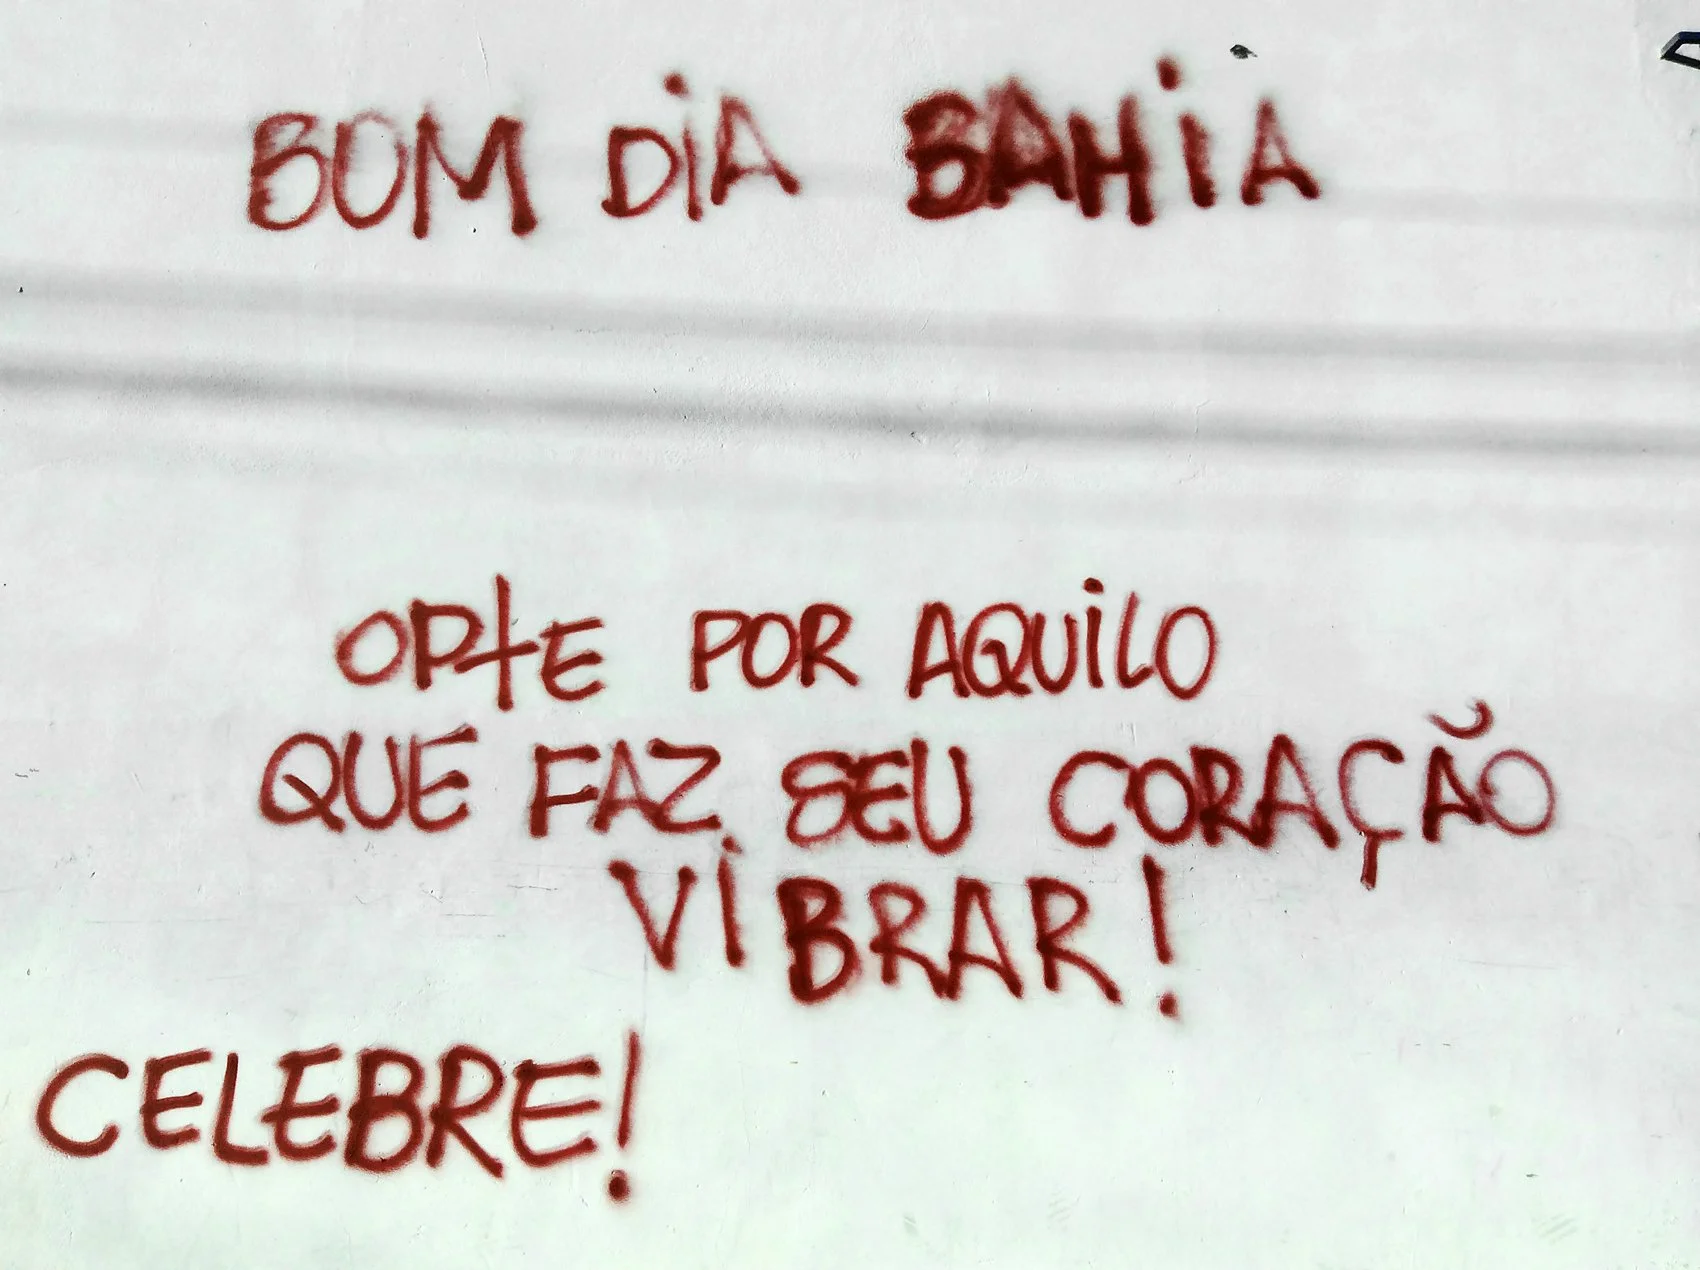 BOM DIA BAHIA
OPTE POR AQUILO
QUE FAZ SEU CORAÇÃO
VIBRAR!
CELEBRE!